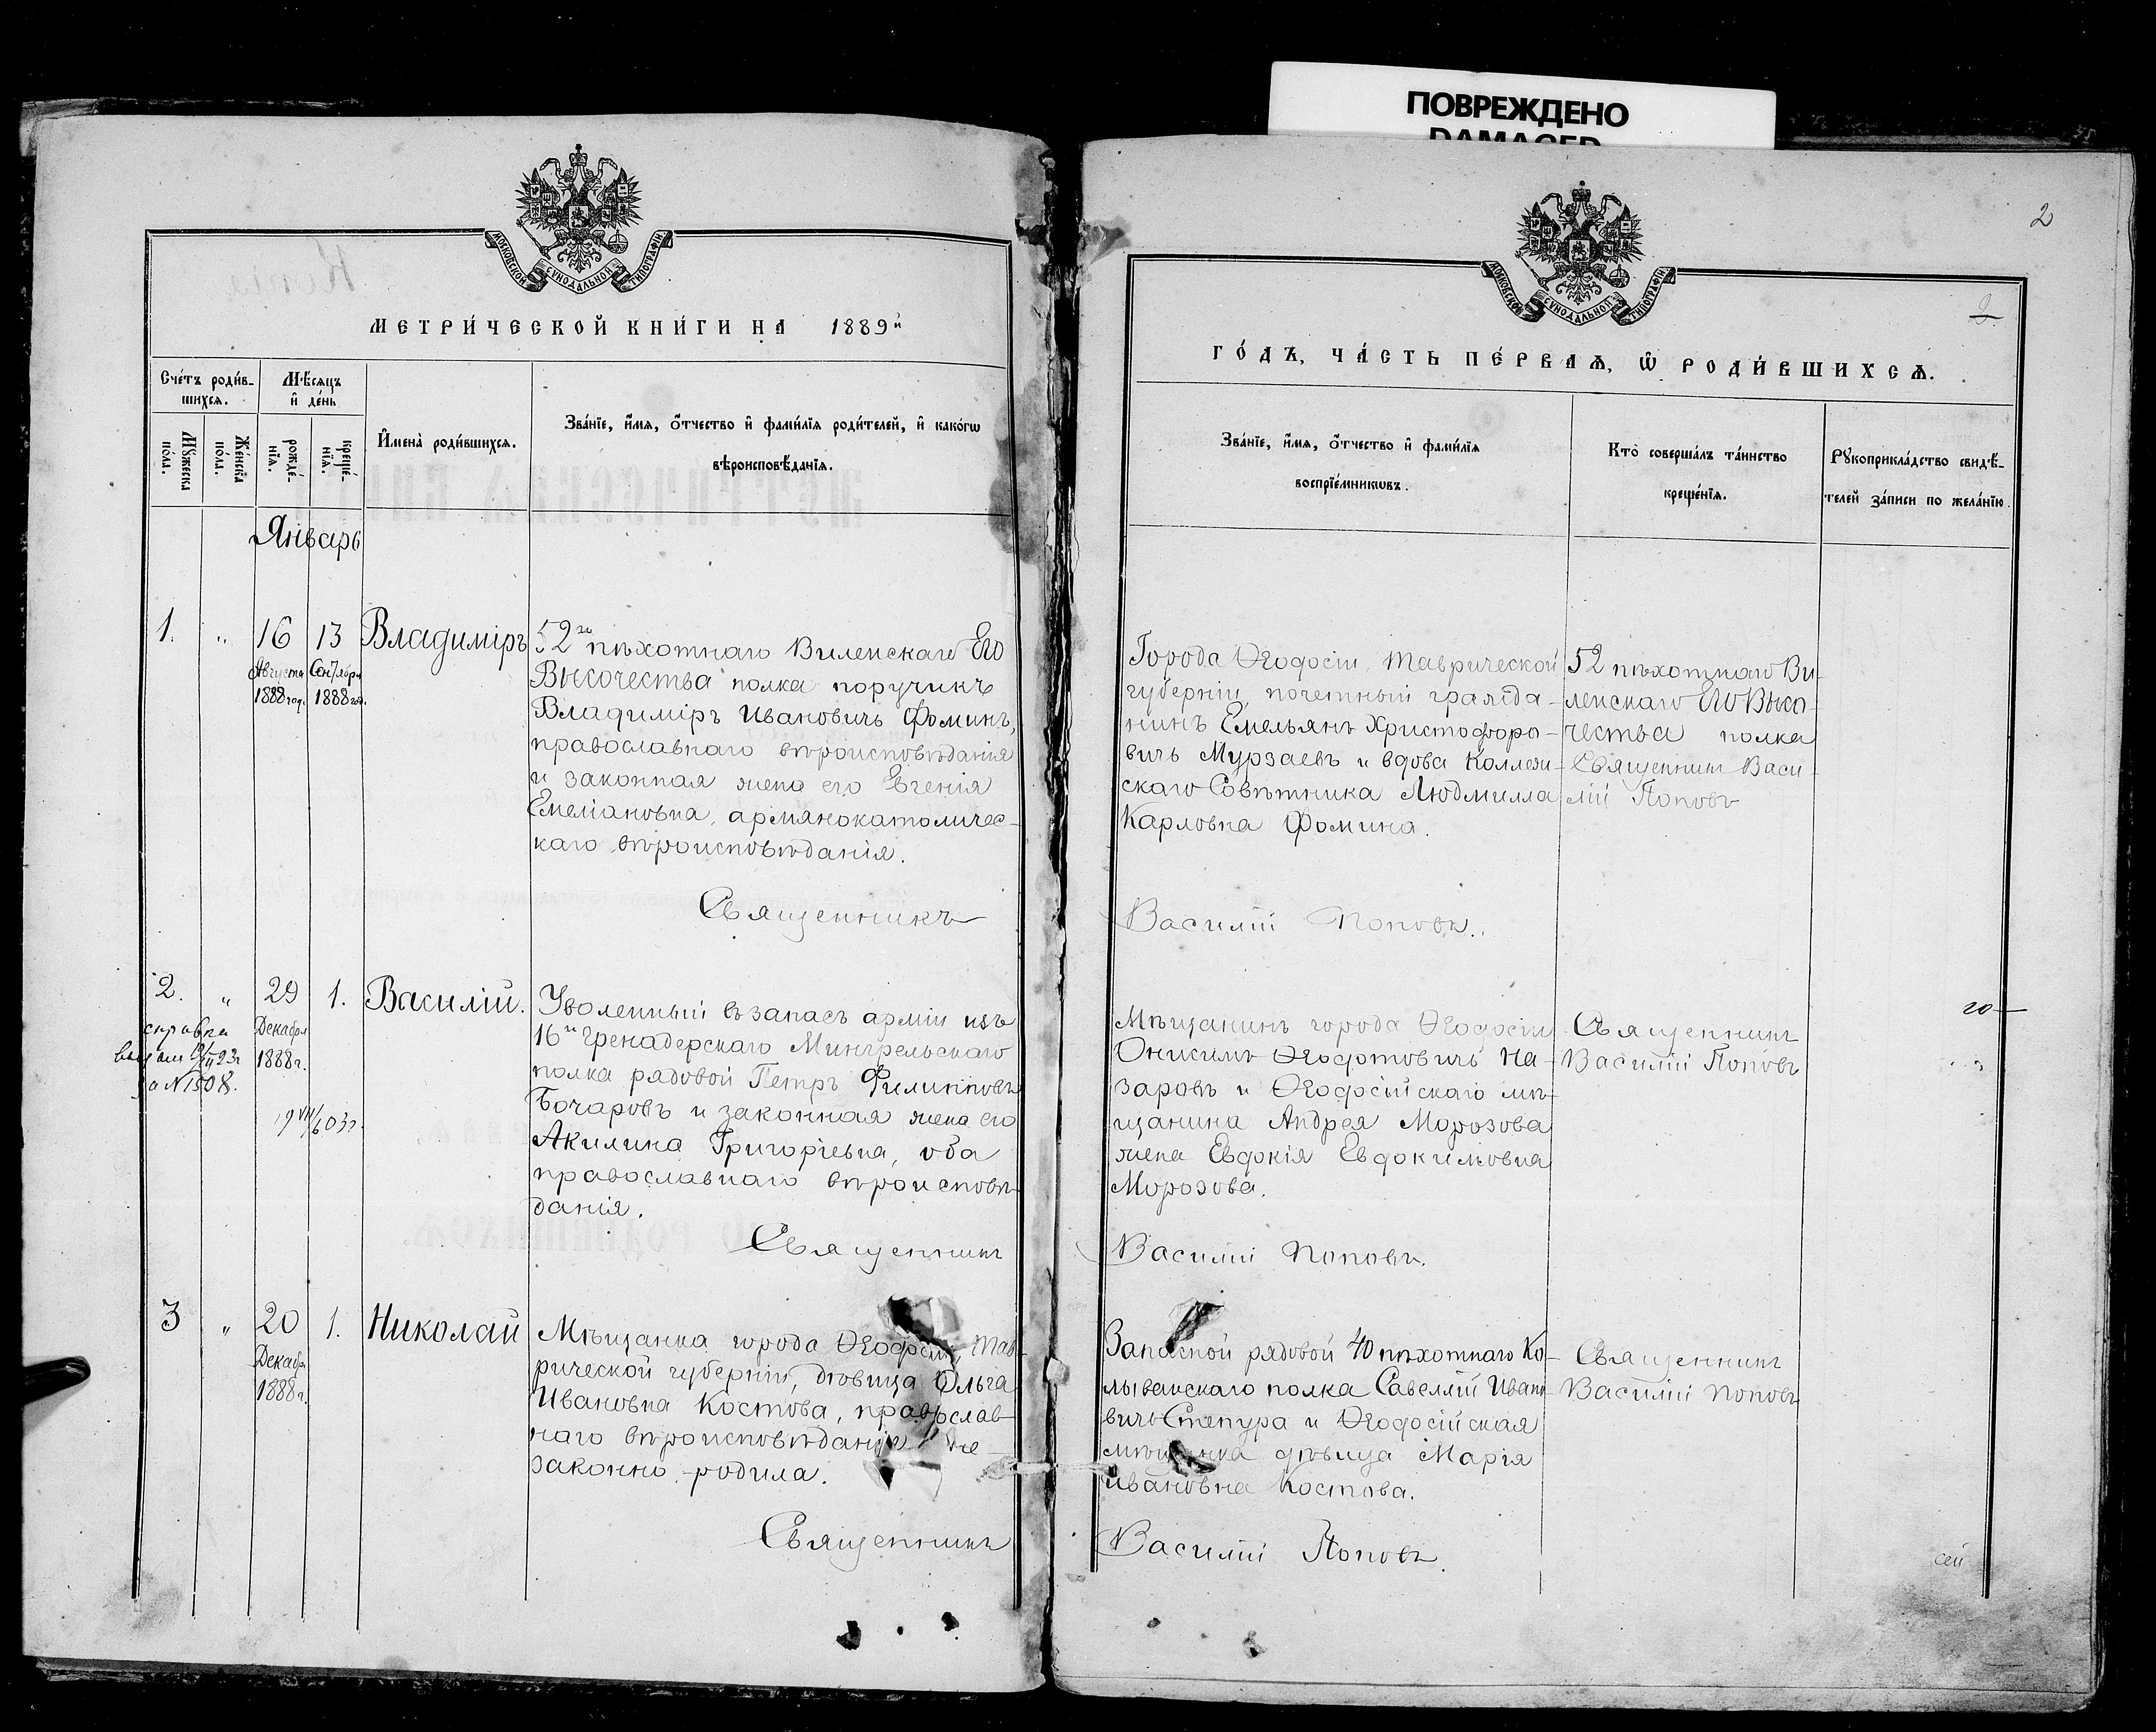 ПОВРЕЖДЕНО
DAMAGED
МОСКОВСКОЙ СѴНОДАЛЬНОЙ ТИПОГРАФІИ
МЕТРИ́ЧЕСКОЙ КНИ́ГИ НА 1889й
Сче́тъ роди́в-
шихсѧ.
Мѹжеска
по́ла.
Же́нска
по́ла.
Мѣ́сѧцъ
и҆ де́нь
рожде́-
нїѧ.
креще́-
нїѧ.
И҆мена̀ роди́вшихсѧ.
Зва́нїе, и҆́мѧ, ѻ҆́тчество и҆ фами́лїѧ роди́телей, и҆ како́гѡ
вѣроисповѣ́данїѧ.
Январь
1. " 16 13 Владиміръ
Августа Сентября
1888 год. 1888 год.
52го пѣхотнаго Виленскаго Его
Высочества полка поручикъ
Владиміръ Ивановичъ Фоминъ,
православнаго вѣроисповѣданія
и законная жена его Евгенія
Емеліановна, армянокатоличес-
каго вѣроисповѣданія.
Священникъ
2. " 29 1. Василій.
справка
Декабря
1888 г.
за N 1508.
Уволенный въ запасъ арміи изъ
16го Гренадерскаго Мингрельскаго
полка рядовой Петръ Филипповъ
Бочаровъ и законная жена его
Акилина Григоріевна, оба
православнаго вѣроисповѣ-
данія.
Священникъ
3 " 20 1. Николай
Декабр
1888 г.
Мѣщанка города Ѳеодосіи, Тав-
рической губерніи, дѣвица Ольга
Ивановна Костова, православ-
наго вѣроисповѣданія не-
законно родила.
Священникъ
2
МОСКОВСКОЙ СѴНОДАЛЬНОЙ ТИПОГРАФІИ
2
ГО́ДЪ, ЧА́СТЬ ПЕ́РВАѦ, Ѡ҆ РОДИ́ВШИХСѦ.
Зва́нїе, и҆́мѧ, ѻ҆́тчество и҆ фами́лїѧ
воспрїе́мникѡвъ.
Кто̀ соверша́лъ та́инство
креще́нїѧ.
Рѹкоприкла́дство свидѣ́-
телей за́писи по жела́нїю.
Города Ѳеодосіи, Таврической
губерніи, почетный гражда-
нинъ Емельянъ Христофоро-
вичъ Мурзаевъ и вдова Коллежи-
скаго Совѣтника Людмилла
Карловна Фомина.
52 пѣхотнаго Ви-
ленскаго Его Высо-
чества полка
Священникъ Васи-
лій Поповъ
Василій Поповъ.
Мѣщанинъ города Ѳеодосіи
Онисимъ Ѳеофтовичъ На-
заровъ и Ѳеодосійскаго мѣ-
щанина Андрея Морозова
жена Евдокія Евдокимовна
Морозова.
Священникъ
Василій Поповъ
го
Василій Поповъ.
Запасной рядовой 40 пѣхотнаго Ко-
лыванскаго полка Савеллій Ивано-
вичъ Степура и Ѳеодосійская
мѣщанка дѣвица Марія
Ивановна Костова.
Священникъ
Василій Поповъ
Василій Поповъ.
сей